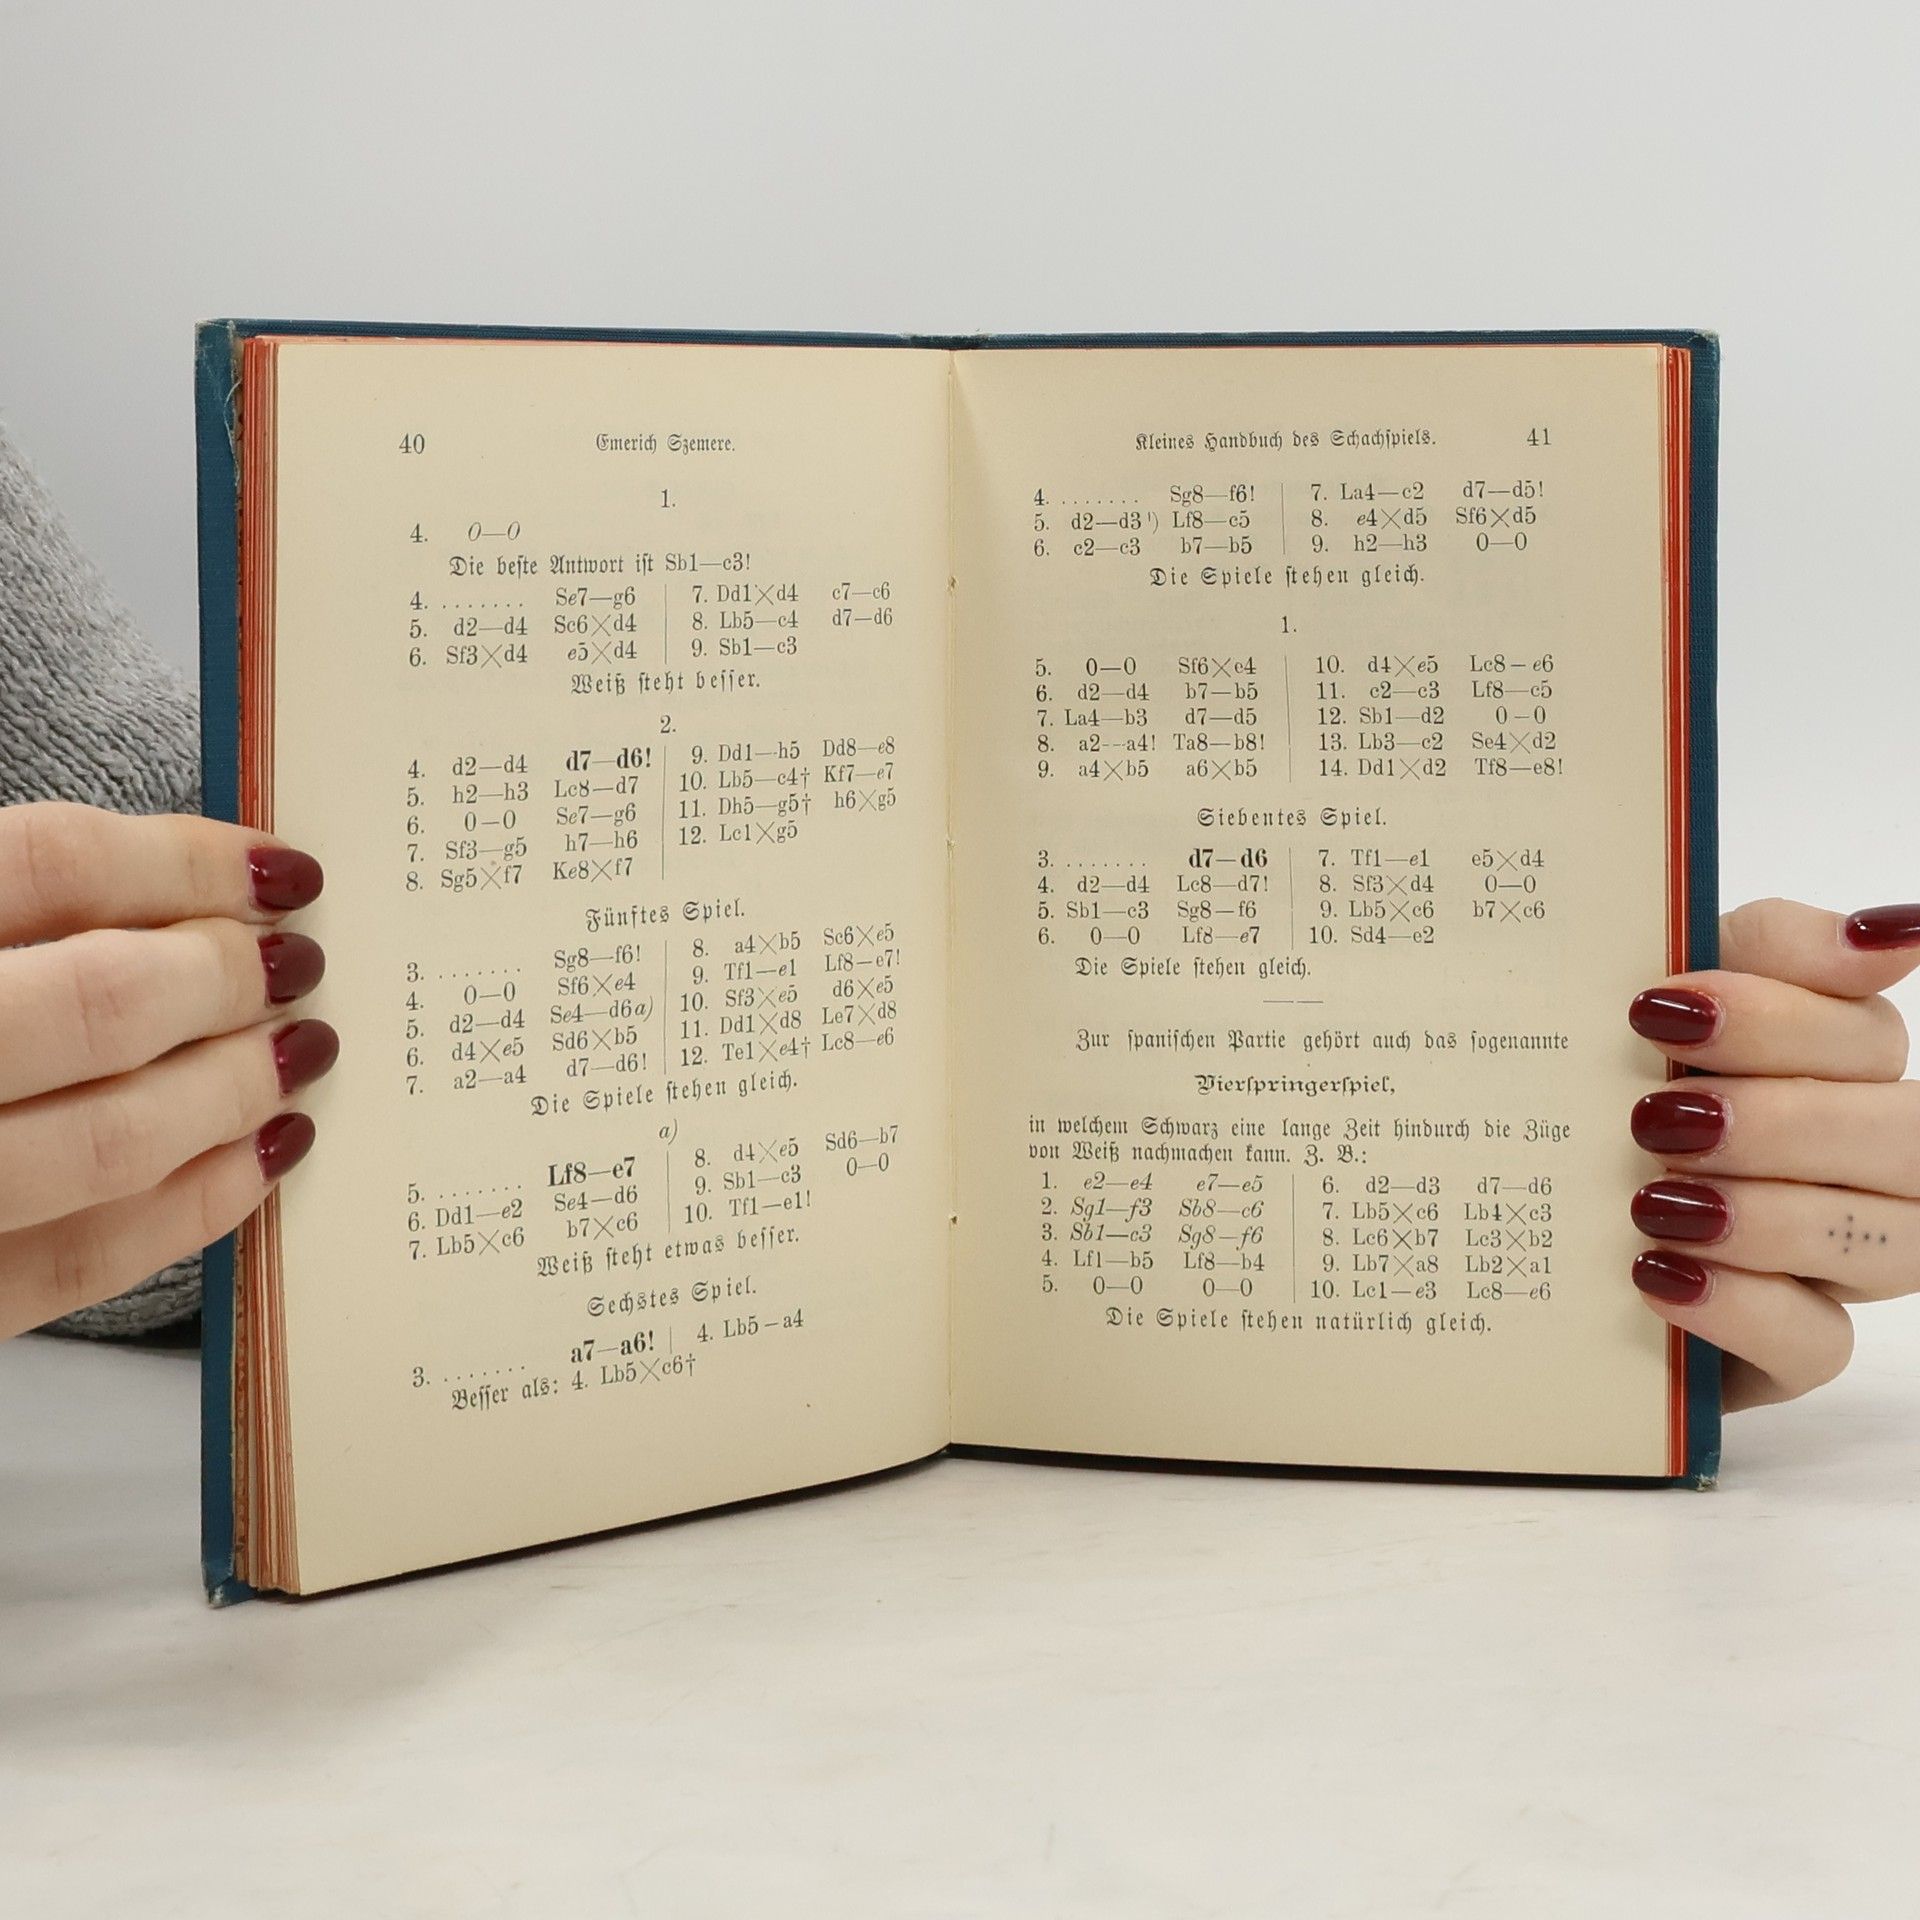 40 Emerich Szemere.
1.
4. 0—0
Die beste Antwort ist Sb1—c3!
4. ........ Se7—g6 7. Dd1×d4 c7—c6
5. d2—d4 Sc6×d4 8. Lb5—c4 d7—d6
6. Sf3×d4 e5×d4 9. Sb1—c3
Weiß steht besser.
2.
4. d2—d4 d7—d6! 9. Dd1—h5 Dd8—e8
5. h2—h3 Lc8—d7 10. Lb5—c4† Kf7—e7
6. 0—0 Se7—g6 11. Dh5—g5† h6×g5
7. Sf3—g5 h7—h6 12. Lc1×g5
8. Sg5×f7 Ke8×f7
Fünftes Spiel.
3. ........ Sg8—f6! 8. a4×b5 Sc6×e5
4. 0—0 Sf6×e4 9. Tf1—e1 Lf8—e7!
5. d2—d4 Se4—d6a) 10. Sf3×e5 d6×e5
6. d4×e5 Sd6×b5 11. Dd1×d8 Le7×d8
7. a2—a4 d7—d6! 12. Te1×e4† Lc8—e6
Die Spiele stehen gleich.
a)
5. ........ Lf8—e7 8. d4×e5 Sd6—b7
6. Dd1—e2 Se4—d6 9. Sb1—c3 0—0
7. Lb5×c6 b7×c6 10. Tf1—e1!
Weiß steht etwas besser.
Sechstes Spiel.
3. ........ a7—a6! 4. Lb5—a4
Besser als: 4. Lb5×c6†
Kleines Handbuch des Schachspiels. 41
4. ....... Sg8—f6! 7. La4—c2 d7—d5!
5. d2—d3¹) Lf8—c5 8. e4×d5 Sf6×d5
6. c2—c3 b7—b5 9. h2—h3 0—0
Die Spiele stehen gleich.
1.
5. 0—0 Sf6×e4 10. d4×e5 Lc8—e6
6. d2—d4 b7—b5 11. c2—c3 Lf8—c5
7. La4—b3 d7—d5 12. Sb1—d2 0—0
8. a2—a4! Ta8—b8! 13. Lb3—c2 Se4×d2
9. a4×b5 a6×b5 14. Dd1×d2 Tf8—e8!
Siebentes Spiel.
3. ........ d7—d6 7. Tf1—e1 e5×d4
4. d2—d4 Lc8—d7! 8. Sf3×d4 0—0
5. Sb1—c3 Sg8—f6 9. Lb5×c6 b7×c6
6. 0—0 Lf8—e7 10. Sd4—e2
Die Spiele stehen gleich.
Zur spanischen Partie gehört auch das sogenannte
Vierspringerspiel,
in welchem Schwarz eine lange Zeit hindurch die Züge
von Weiß nachmachen kann. Z. B.:
1. e2—e4 e7—e5 6. d2—d3 d7—d6
2. Sg1—f3 Sb8—c6 7. Lb5×c6 Lb4×c3
3. Sb1—c3 Sg8—f6 8. Lc6×b7 Lc3×b2
4. Lf1—b5 Lf8—b4 9. Lb7×a8 Lb2×a1
5. 0—0 0—0 10. Lc1—e3 Lc8—e6
Die Spiele stehen natürlich gleich.